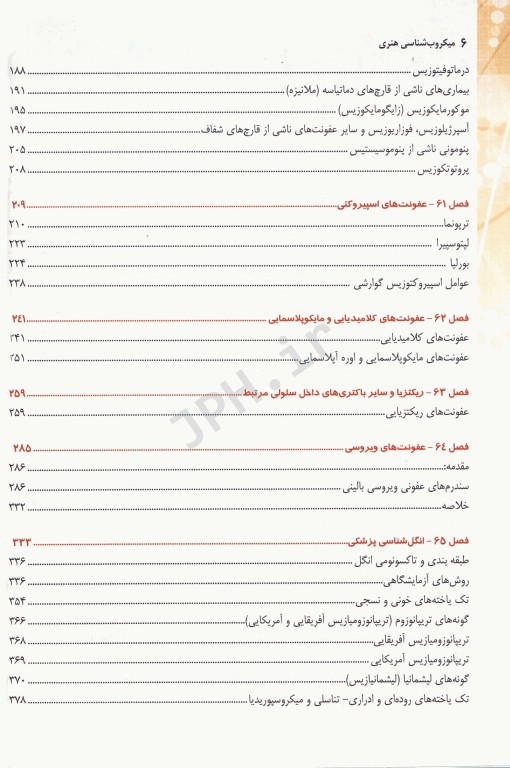 ۶ میکروب‌شناسی هنری
درماتوفیتوزیس ۱۸۸
بیماری‌های ناشی از قارچ‌های دماتیاسه (ملانیزه) ۱۹۱
موکورمایکوزیس (زایگومایکوزیس) ۱۹۵
آسپرژیلوزیس، فوزاریوزیس و سایر عفونت‌های ناشی از قارچ‌های شفاف ۱۹۷
پنومونی ناشی از پنوموسیستیس ۲۰۵
پروتوتکوزیس ۲۰۸
فصل ۶۱ – عفونت‌های اسپیروکتی ۲۰۹
ترپونما ۲۱۰
لپتوسپیرا ۲۲۳
بورلیا ۲۲۴
عوامل اسپیروکتوزیس گوارشی ۲۳۸
فصل ۶۲ – عفونت‌های کلامیدیایی و مایکوپلاسمایی ۲۴۱
عفونت‌های کلامیدیایی ۲۴۱
عفونت‌های مایکوپلاسمایی و اوره آپلاسمایی ۲۵۱
فصل ۶۳ – ریکتزیا و سایر باکتری‌های داخل سلولی مرتبط ۲۵۹
عفونت‌های ریکتزیایی ۲۵۹
فصل ۶۴ – عفونت‌های ویروسی ۲۸۵
مقدمه: ۲۸۶
سندرم‌های عفونی ویروسی بالینی ۲۸۶
خلاصه ۳۳۲
فصل ۶۵ – انگل‌شناسی پزشکی ۳۳۳
طبقه بندی و تاکسونومی انگل ۳۳۶
روش‌های آزمایشگاهی ۳۳۶
تک یاخته‌های خونی و نسجی ۳۵۴
گونه‌های تریپانوزوم (تریپانوزومیازیس آفریقایی و آمریکایی) ۳۶۶
تریپانوزومیازیس آفریقایی ۳۶۸
تریپانوزومیازیس آمریکایی ۳۶۹
گونه‌های لیشمانیا (لیشمانیازیس) ۳۷۰
تک یاخته‌های روده‌ای و ادراری- تناسلی و میکروسپوریدیا ۳۷۸
JPH.ir